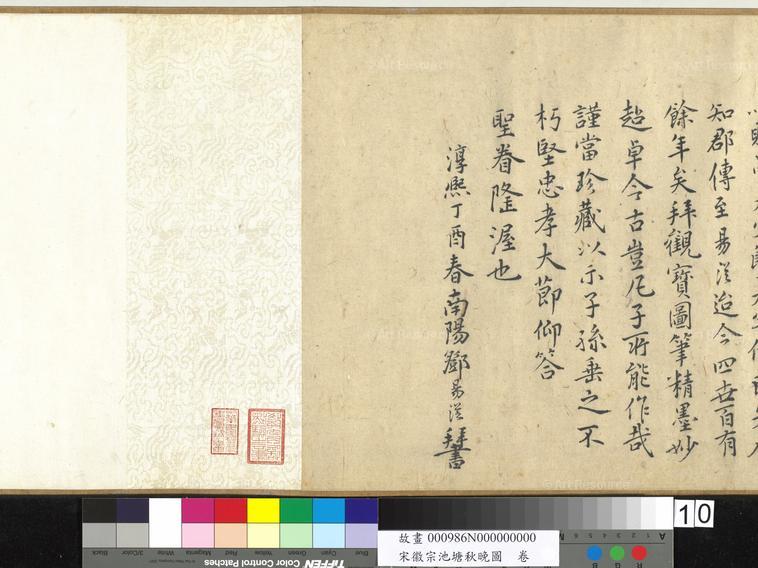 知郡傳至易從迨今四世百有
餘年矣拜觀寶圖筆精墨妙
超卓今古豈凡子所能作哉
謹當珍藏以示子孫垂之不
朽堅忠孝大節仰答
聖眷隆渥也
淳熙丁酉春南陽鄧易從拜書
10
故畫 000986N000000000
宋徽宗池塘秋晚圖 卷
Black
3/Color
White
Magenta
Red
Yellow
Green
Cyan
Blue
TIFFEN Color Control Patches
A 1 2 3 4 5 6
B G R
Art Resource